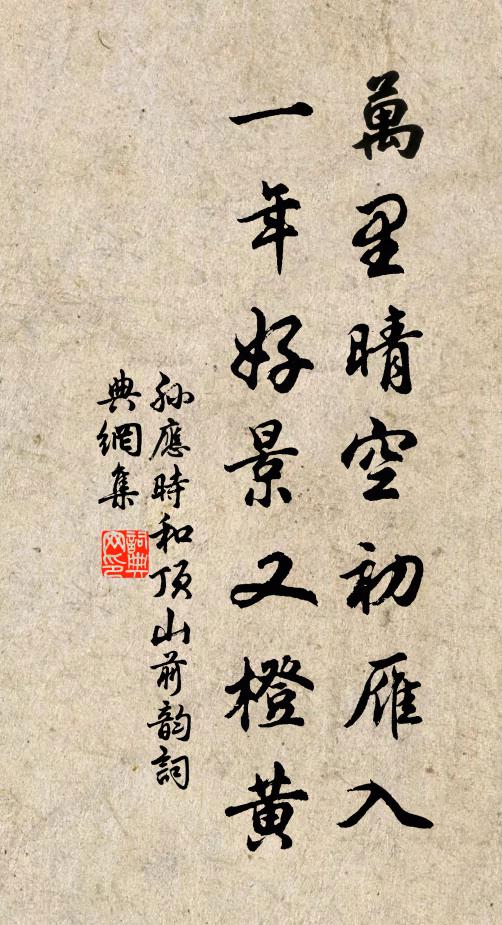 萬里晴空初雁入
一年好景又橙黃
孫應時和頂山前韵詞
典網集
詞典
网印